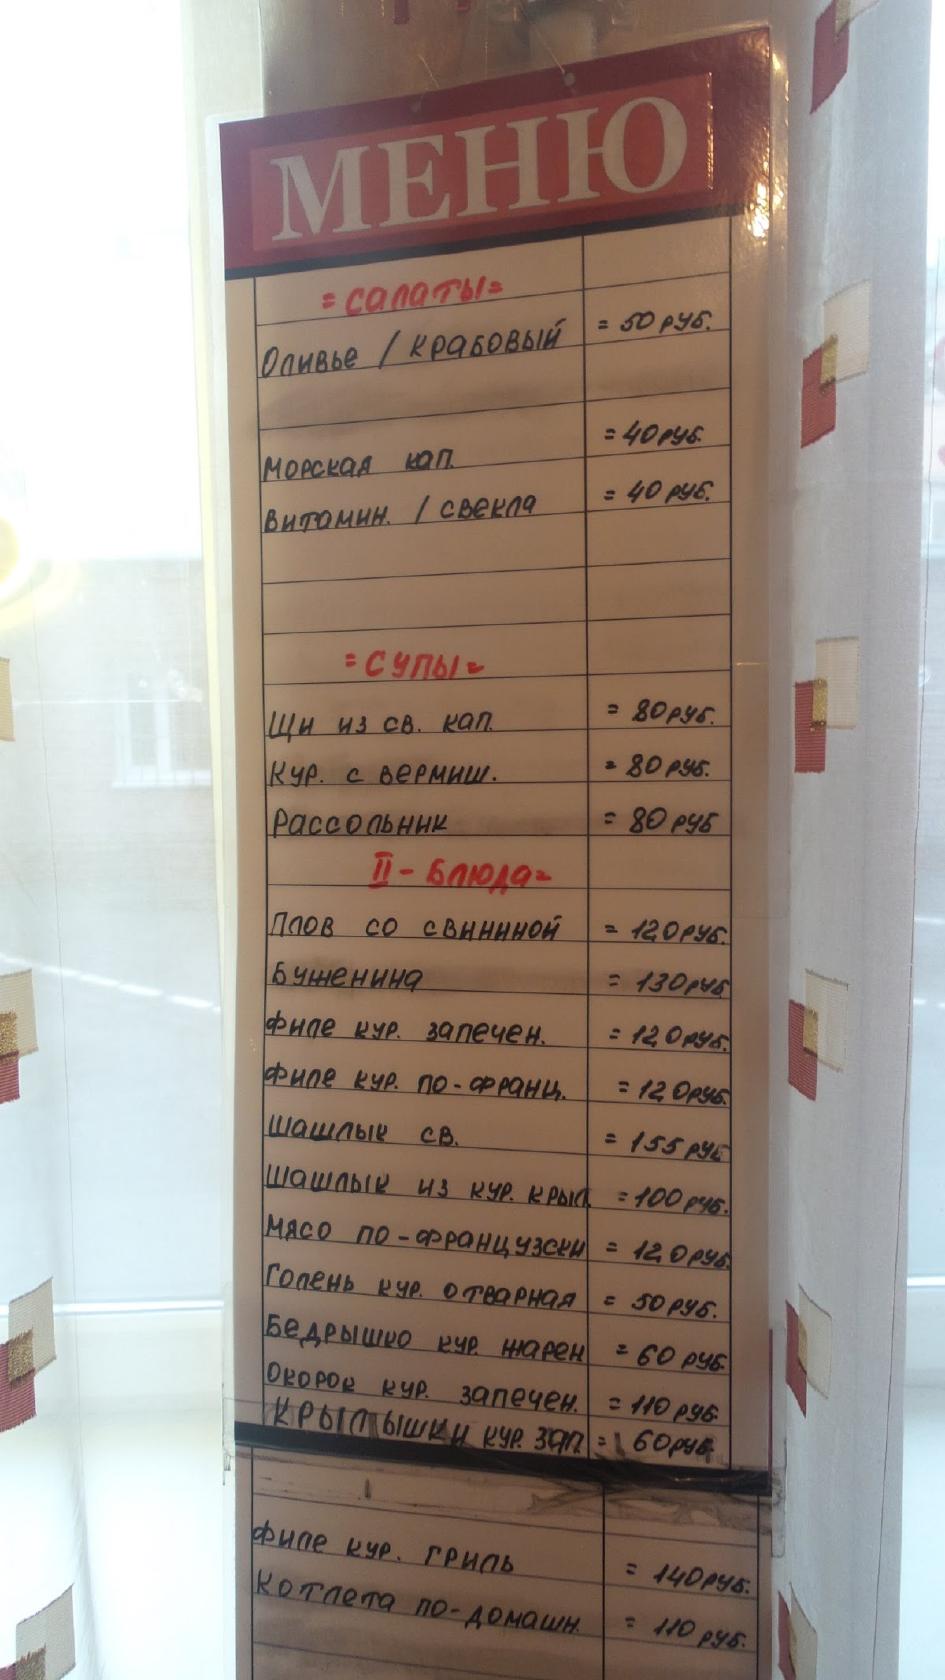 МЕНЮ
=САЛАТЫ=
Оливье / крабовый = 50 руб.
Морская кап. = 40 руб.
Витамин. / свекла = 40 руб.
=СУПЫ=
Щи из св. кап. = 80 руб.
Кур. с вермиш. = 80 руб.
Рассольник = 80 руб
II - Блюда=
Плов со свининой = 120 руб.
Буженина = 130 руб
Филе кур. запечен. = 120 руб.
Филе кур. по-франц. = 120 руб.
Шашлык св. = 155 руб
Шашлык из кур. крыл = 100 руб.
Мясо по-французски = 120 руб.
Голень кур. отварная = 50 руб.
Бедрышко кур. жарен = 60 руб.
Окорок кур. запечен. = 110 руб.
Крылышки кур. зап = 60 руб.
Филе кур. гриль = 140 руб.
Котлета по-домашн. = 110 руб.